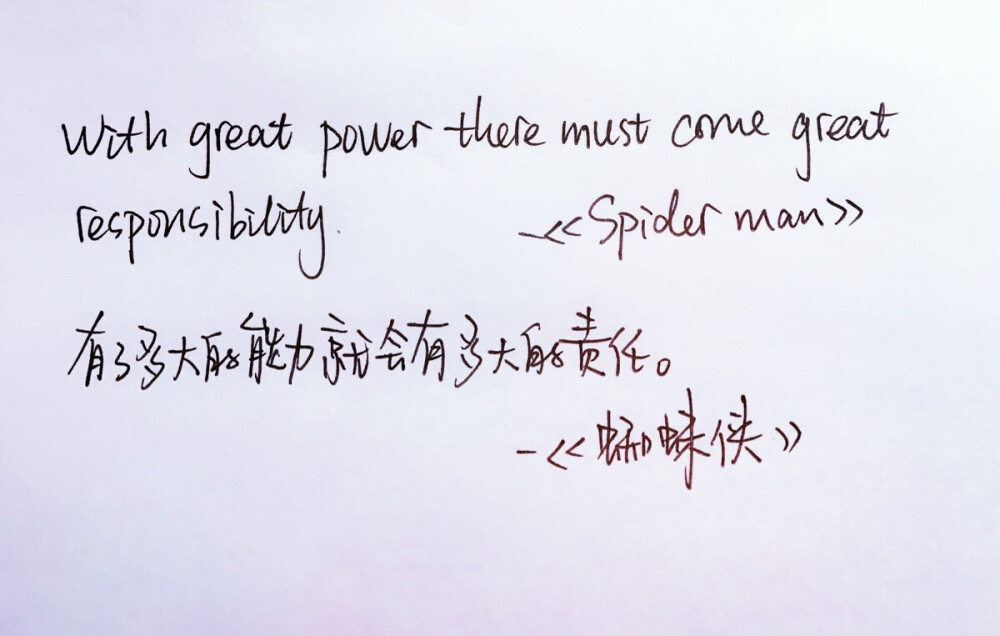 With great power there must come great
responsibility.
—<<Spider man>>
有了多大的能力就会有多大的责任。
—<<蜘蛛侠>>